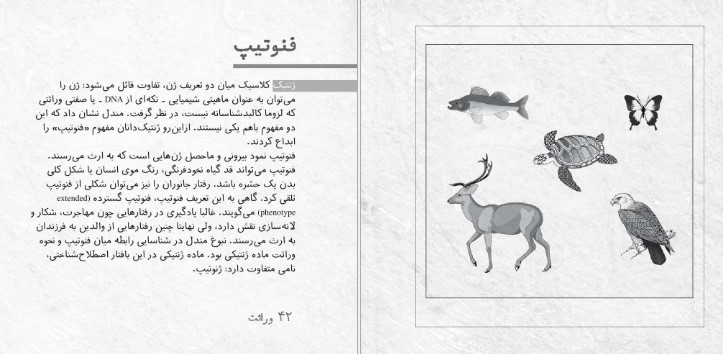 فنوتیپ
ژنتیک کلاسیک میان دو تعریف ژن، تفاوت قائل می‌شود: ژن را
می‌توان به عنوان ماهیتی شیمیایی ـ تکه‌ای از DNA ـ یا صفتی وراثتی
که لزوما کالبدشناسانه نیست، در نظر گرفت. مندل نشان داد که این
دو مفهوم باهم یکی نیستند. ازاین‌رو ژنتیک‌دانان مفهوم «فنوتیپ» را
ابداع کردند.
فنوتیپ نمود بیرونی و ماحصل ژن‌هایی است که به ارث می‌رسند.
فنوتیپ می‌تواند قد گیاه نخودفرنگی، رنگ موی انسان یا شکل کلی
بدن یک حشره باشد. رفتار جانوران را نیز می‌توان شکلی از فنوتیپ
تلقی کرد. گاهی به این تعریف فنوتیپ، فنوتیپ گسترده (extended
phenotype) می‌گویند. غالبا یادگیری در رفتارهایی چون مهاجرت، شکار و
لانه‌سازی نقش دارد، ولی نهایتا چنین رفتارهایی از والدین به فرزندان
به ارث می‌رسند. نبوغ مندل در شناسایی رابطه میان فنوتیپ و نحوه
وراثت ماده ژنتیکی بود. ماده ژنتیکی در این بافتار اصطلاح‌شناختی،
نامی متفاوت دارد: ژنوتیپ.
۴۲ وراثت